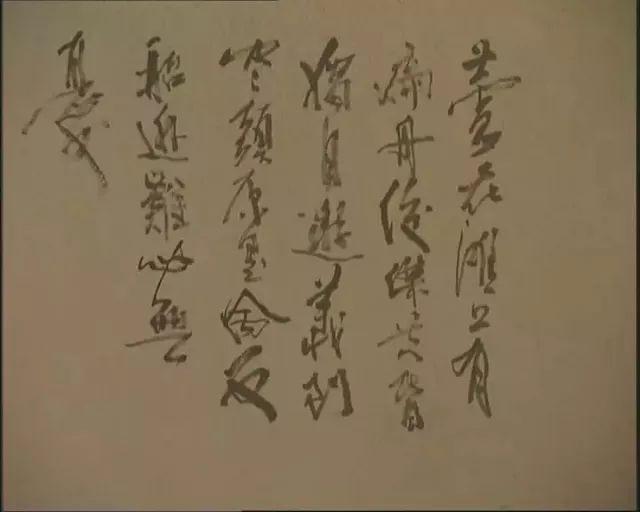 蘆花灘上有
扁舟俊傑黃昏
獨自遊義到
盡頭原是命反
躬逃難必無
憂